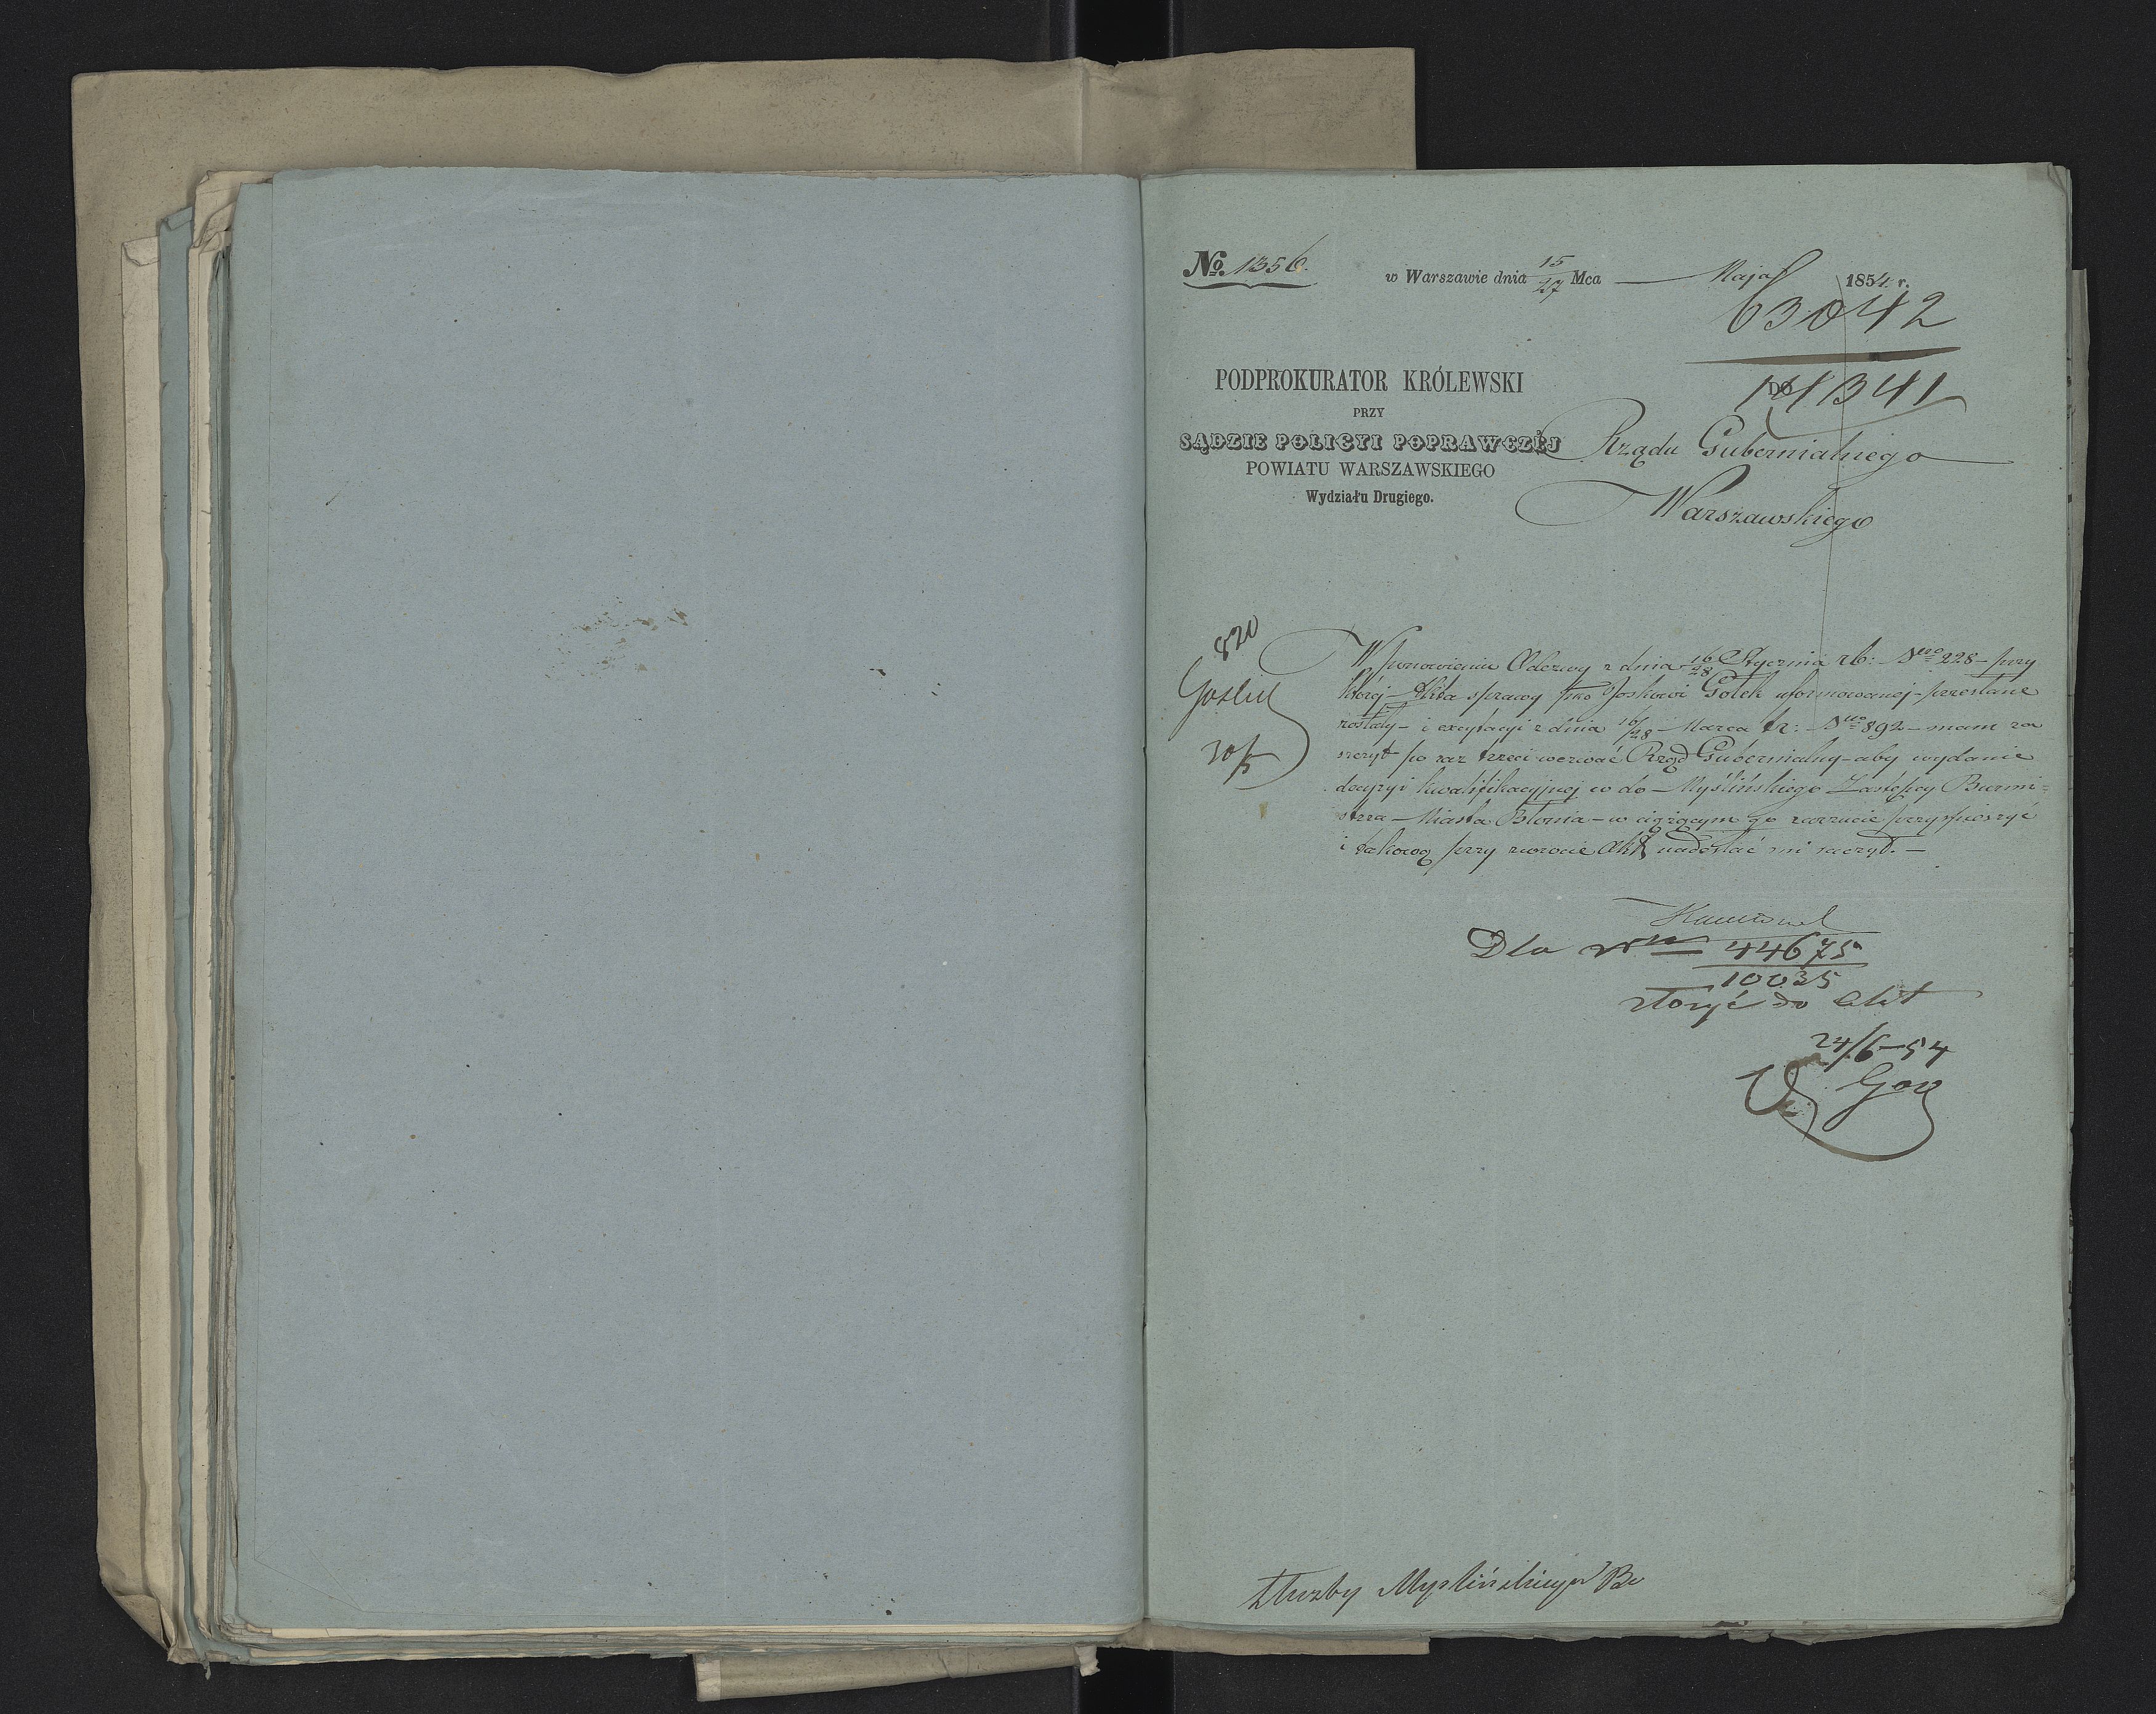 No. 1356.
w Warszawie dnia 15/27 Mca Maja 1854 r.
63042
DO
11341
PODPROKURATOR KRÓLEWSKI
PRZY
SĄDZIE POLICYI POPRAWCZÉJ
POWIATU WARSZAWSKIEGO
Wydziału Drugiego.
Rządu Gubernialnego
Warszawskiego
820
30/5
W ponowieniu Odezwy z dnia 16/28 Stycznia rb: Nro 228 – przy
której – Akta sprawy Joskowi Gołek uformowanej – przesłane
zostały – i excytacyi z dnia 16/28 Marca br: Nro 892 – mam za
szczyt po raz trzeci wezwać Rząd Gubernialny – aby wydanie
decyzyi kwalifikacyjnej co do – Myślińskiego Zastępcy Burmi=
strza – Miasta Błonia – w ciążącym go zarzucie przyspieszyć
i takową przy zwrocie Akt nadesłać mi raczył. –
Dla 44675
10035
złożyć do Akt
24/6–54
Służby Myślińskiego Bu